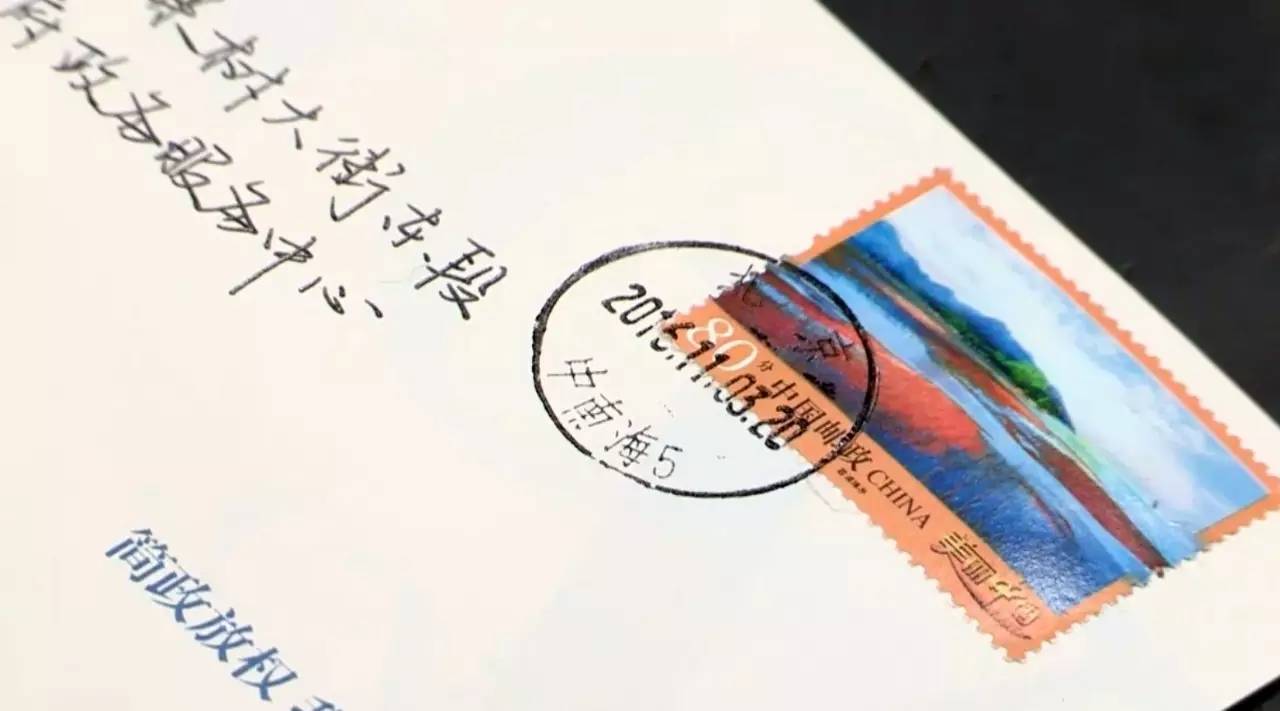 村大街东段
政务服务中心
北京
2016.11.03.20
中南海5
80分
中国邮政 CHINA
美丽中国
简政放权